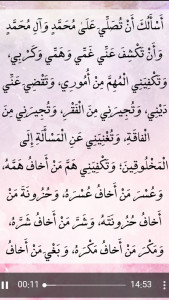 أَسْأَلُكَ أَنْ تُصَلِّيَ عَلَىٰ مُحَمَّدٍ وَآلِ مُحَمَّدٍ
وَأَنْ تَكْشِفَ عَنِّي غَمِّي وَهَمِّي وَكَرْبِي،
وَتَكْفِيَنِي الْمُهِمَّ مِنْ أُمُورِي، وَتَقْضِيَ عَنِّي
دَيْنِي، وَتُجِيرَنِي مِنَ الْفَقْرِ، وَتُجِيرَنِي مِنَ
الْفَاقَةِ، وَتُغْنِيَنِي عَنِ الْمَسْأَلَةِ إِلَى
الْمَخْلُوقِينَ، وَتَكْفِيَنِي هَمَّ مَنْ أَخَافُ هَمَّهُ،
وَعُسْرَ مَنْ أَخَافُ عُسْرَهُ، وَحُزُونَةَ مَنْ
أَخَافُ حُزُونَتَهُ، وَشَرَّ مَنْ أَخَافُ شَرَّهُ،
وَمَكْرَ مَنْ أَخَافُ مَكْرَهُ، وَبَغْيَ مَنْ أَخَافُ
00:11 14:53